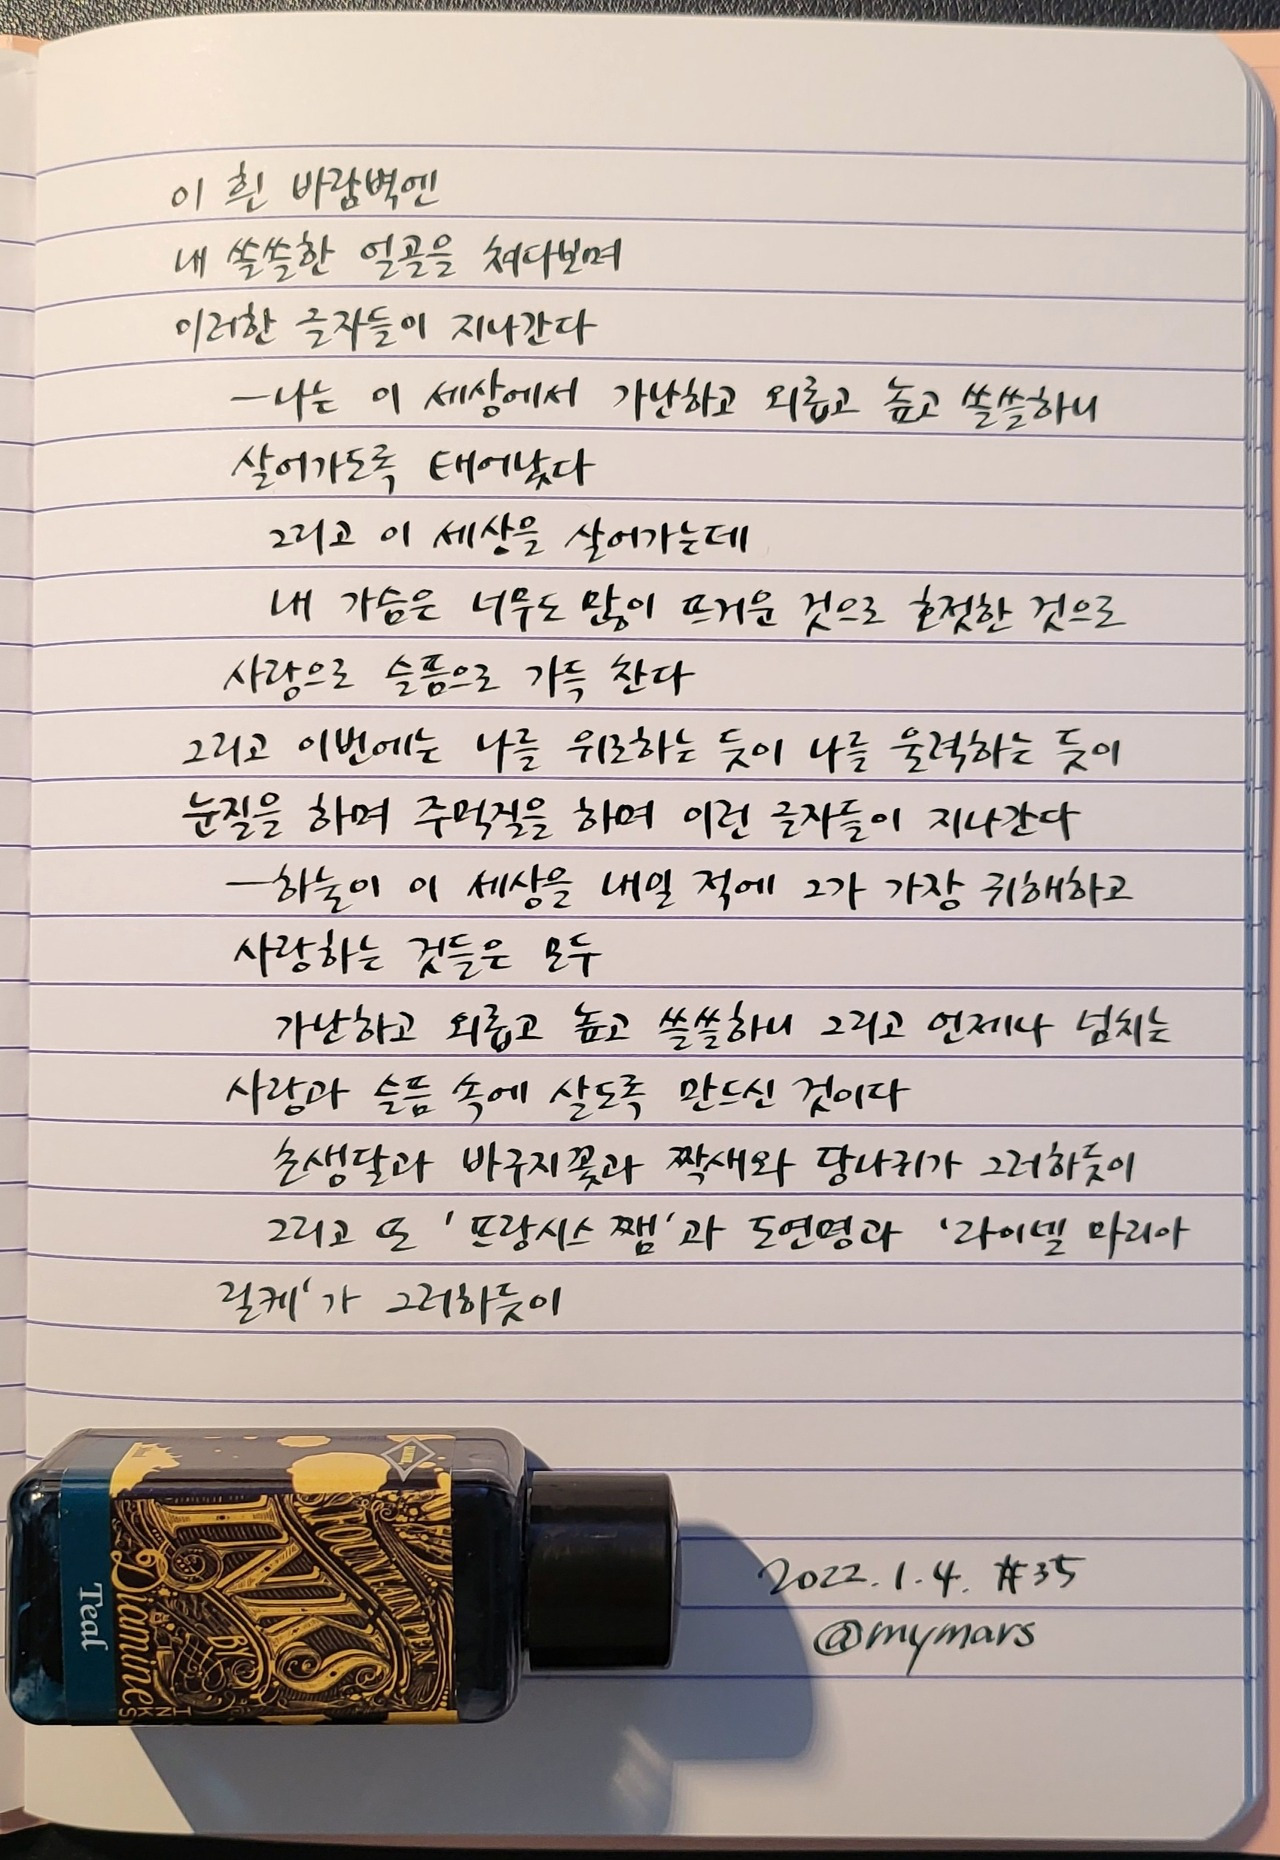 이 흰 바람벽엔
내 쓸쓸한 얼골을 쳐다보며
이러한 글자들이 지나간다
—나는 이 세상에서 가난하고 외롭고 높고 쓸쓸하니
살어가도록 태어났다
그리고 이 세상을 살어가는데
내 가슴은 너무도 많이 뜨거운 것으로 호젓한 것으로
사랑으로 슬픔으로 가득 찬다
그리고 이번에는 나를 위로하는 듯이 나를 울력하는 듯이
눈질을 하며 주먹질을 하며 이런 글자들이 지나간다
—하눌이 이 세상을 내일 적에 그가 가장 귀해하고
사랑하는 것들은 모두
가난하고 외롭고 높고 쓸쓸하니 그리고 언제나 넘치는
사랑과 슬픔 속에 살도록 만드신 것이다
초생달과 바구지꽃과 짝새와 당나귀가 그러하듯이
그리고 또 '프랑시스 쨈'과 도연명과 '라이넬 마리아
릴케'가 그러하듯이
2022.1.4. #35
@mymars
FOUNTAIN PEN
INKS
BY
Diamine
INKS
Teal